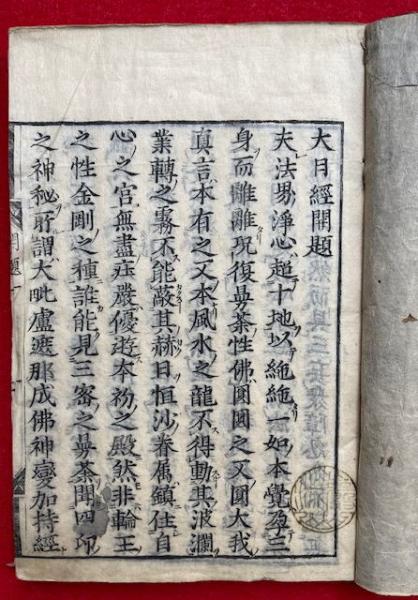 大日經開題
夫法界淨心超十地以絶絶一如本覺孕三
身而離離況復曼荼性佛圓圓之又圓大我
真言本有之又本風水之龍不得動其波瀾
業轉之霧不能蔽其赫日恒沙眷屬鎮住自
心之宮無盡莊嚴優遊本初之殿然非輪王
之性金剛之種誰能見三密之曼荼聞四印
之神秘所謂大毗盧遮那成佛神變加持經
開題